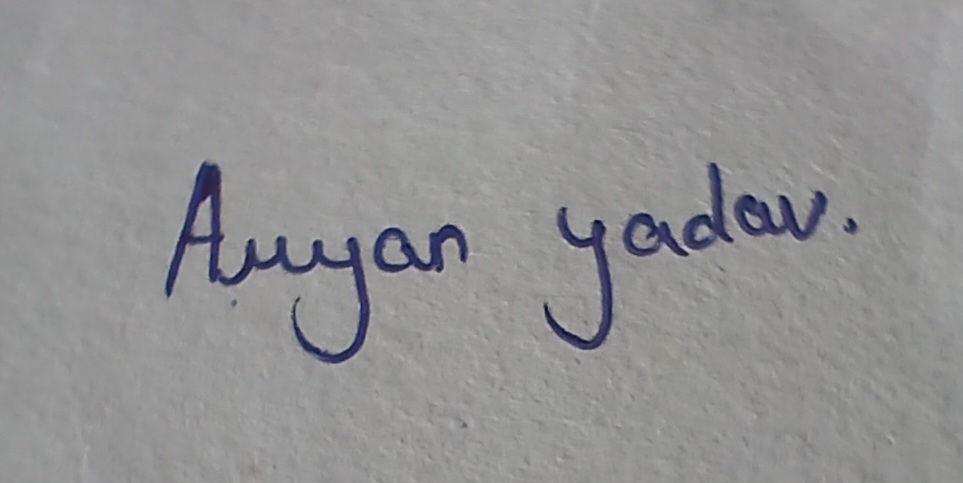 Auyan yadav.